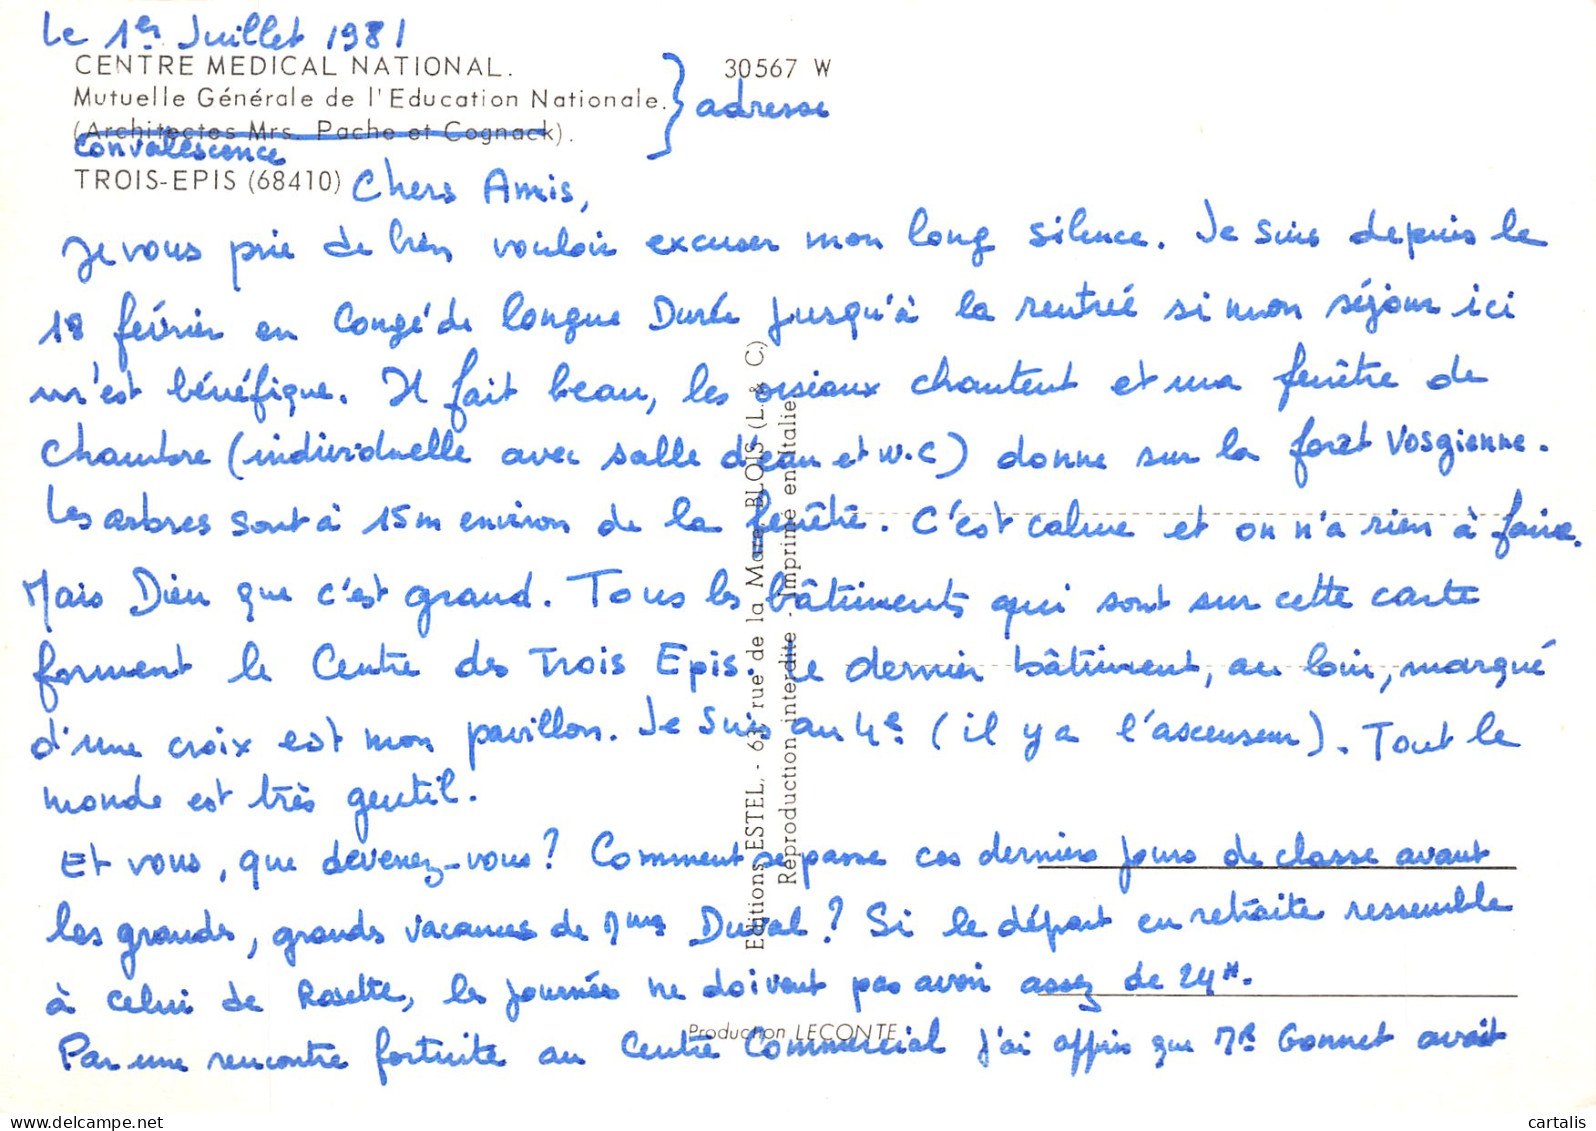 Le 1er Juillet 1981
CENTRE MEDICAL NATIONAL.
30567 W
Mutuelle Générale de l'Education Nationale.
adresse
(Architectes Mrs. Pache et Cognack).
Convalescence
TROIS-EPIS (68410)
Chers Amis,
Je vous prie de bien vouloir excuser mon long silence. Je suis depuis le
18 février en Congé de longue Durée jusqu'à la rentrée si mon séjour ici
m'est bénéfique. Il fait beau, les oiseaux chantent et ma fenêtre de
chambre (individuelle avec salle d'eau et W.C) donne sur la forêt Vosgienne.
Les arbres sont à 15m environ de la fenêtre. C'est calme et on n'a rien à faire.
Mais Dieu que c'est grand. Tous les bâtiments qui sont sur cette carte
forment le Centre des Trois Epis. Le dernier bâtiment, au loin, marqué
d'une croix est mon pavillon. Je suis au 4e (il y a l'ascenseur). Tout le
monde est très gentil.
Et vous, que devenez-vous? Comment se passe ces derniers jours de classe avant
les grands, grands vacances de Mme Duval? Si le départ en retraite ressemble
à celui de Rosette, les journées ne doivent pas avoir assez de 24H.
Par une rencontre fortuite au Centre Commercial j'ai appris que Mr Gonnet avait
Editions ESTEL, - 63, rue de la Mare, BLOIS (L. & C.)
Reproduction interdite - Imprimé en Italie
Production LECONTE
cartalis